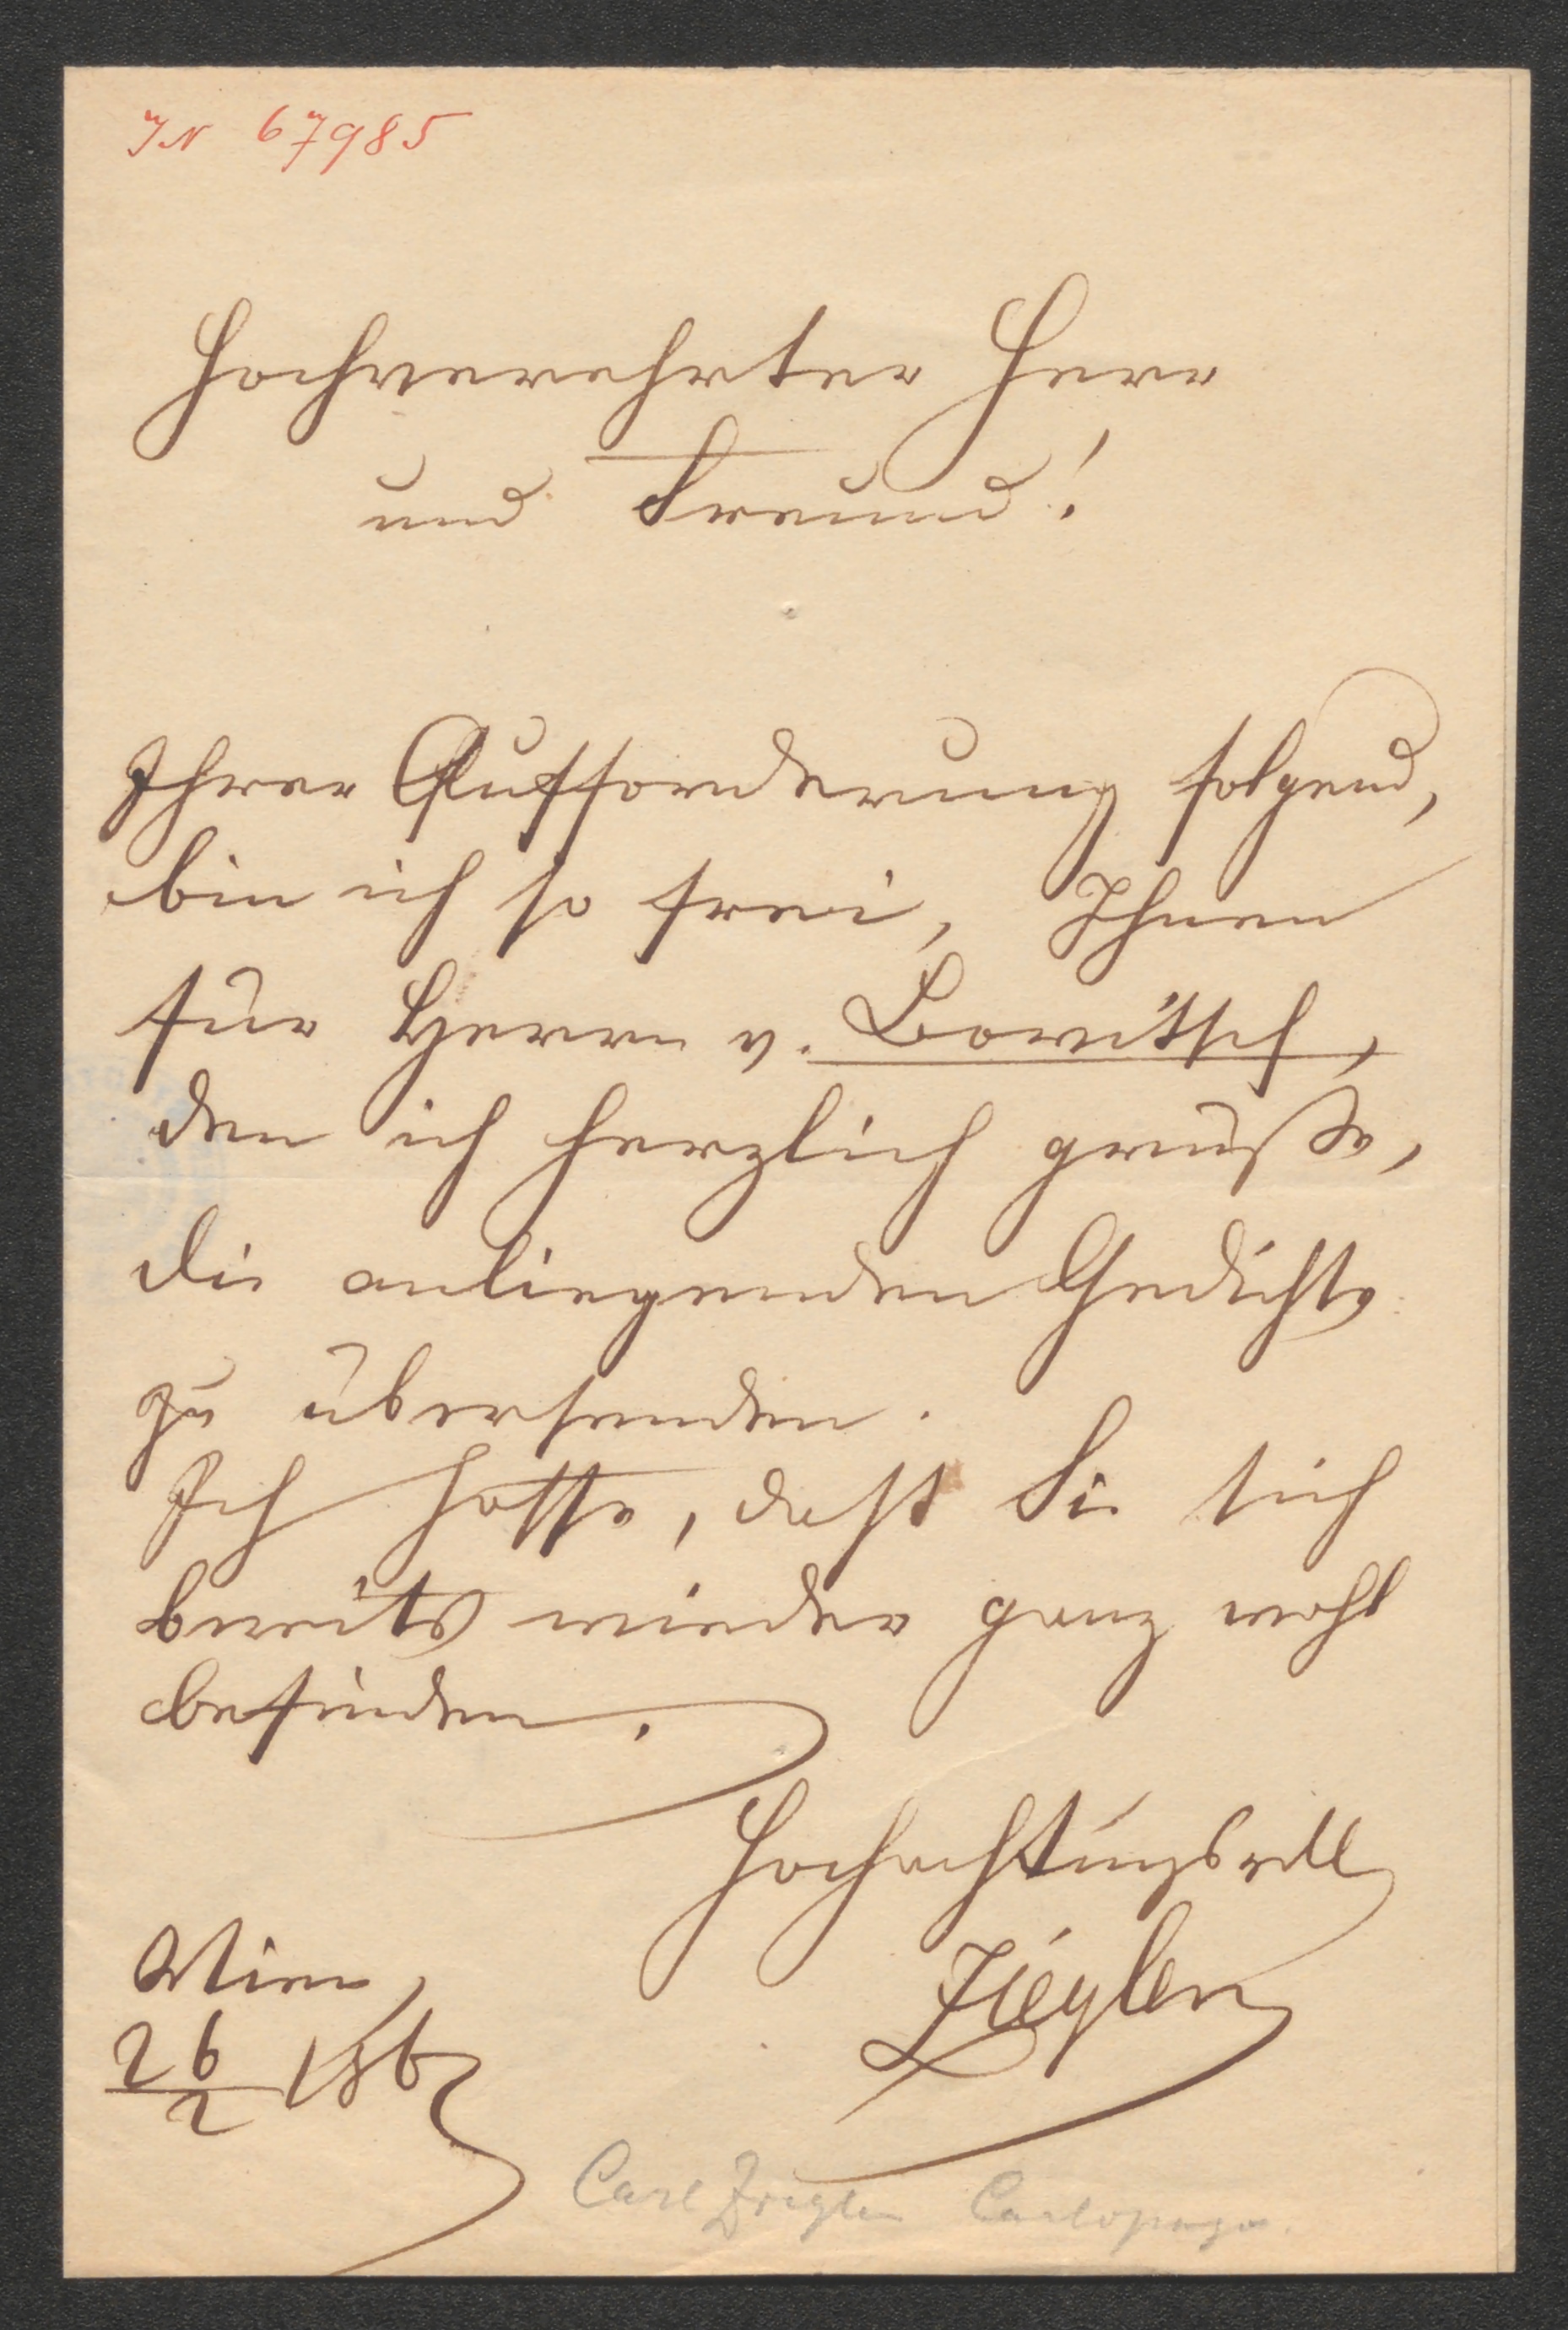 IN 67985
Hochverehrter Herr
und Freund!
Ihrer Aufforderung folgend,
bin ich so frei, Ihnen
für Herrn v. Bowitsch,
den ich herzlich grüße,
die anliegenden Gedichte
zu übersenden.
Ich hoffe, daß Sie sich
bereits wieder ganz wohl
befinden.
Hochachtungsvoll
Ziegler
Wien,
26/2 186
Carl Ziegler Carlopago.